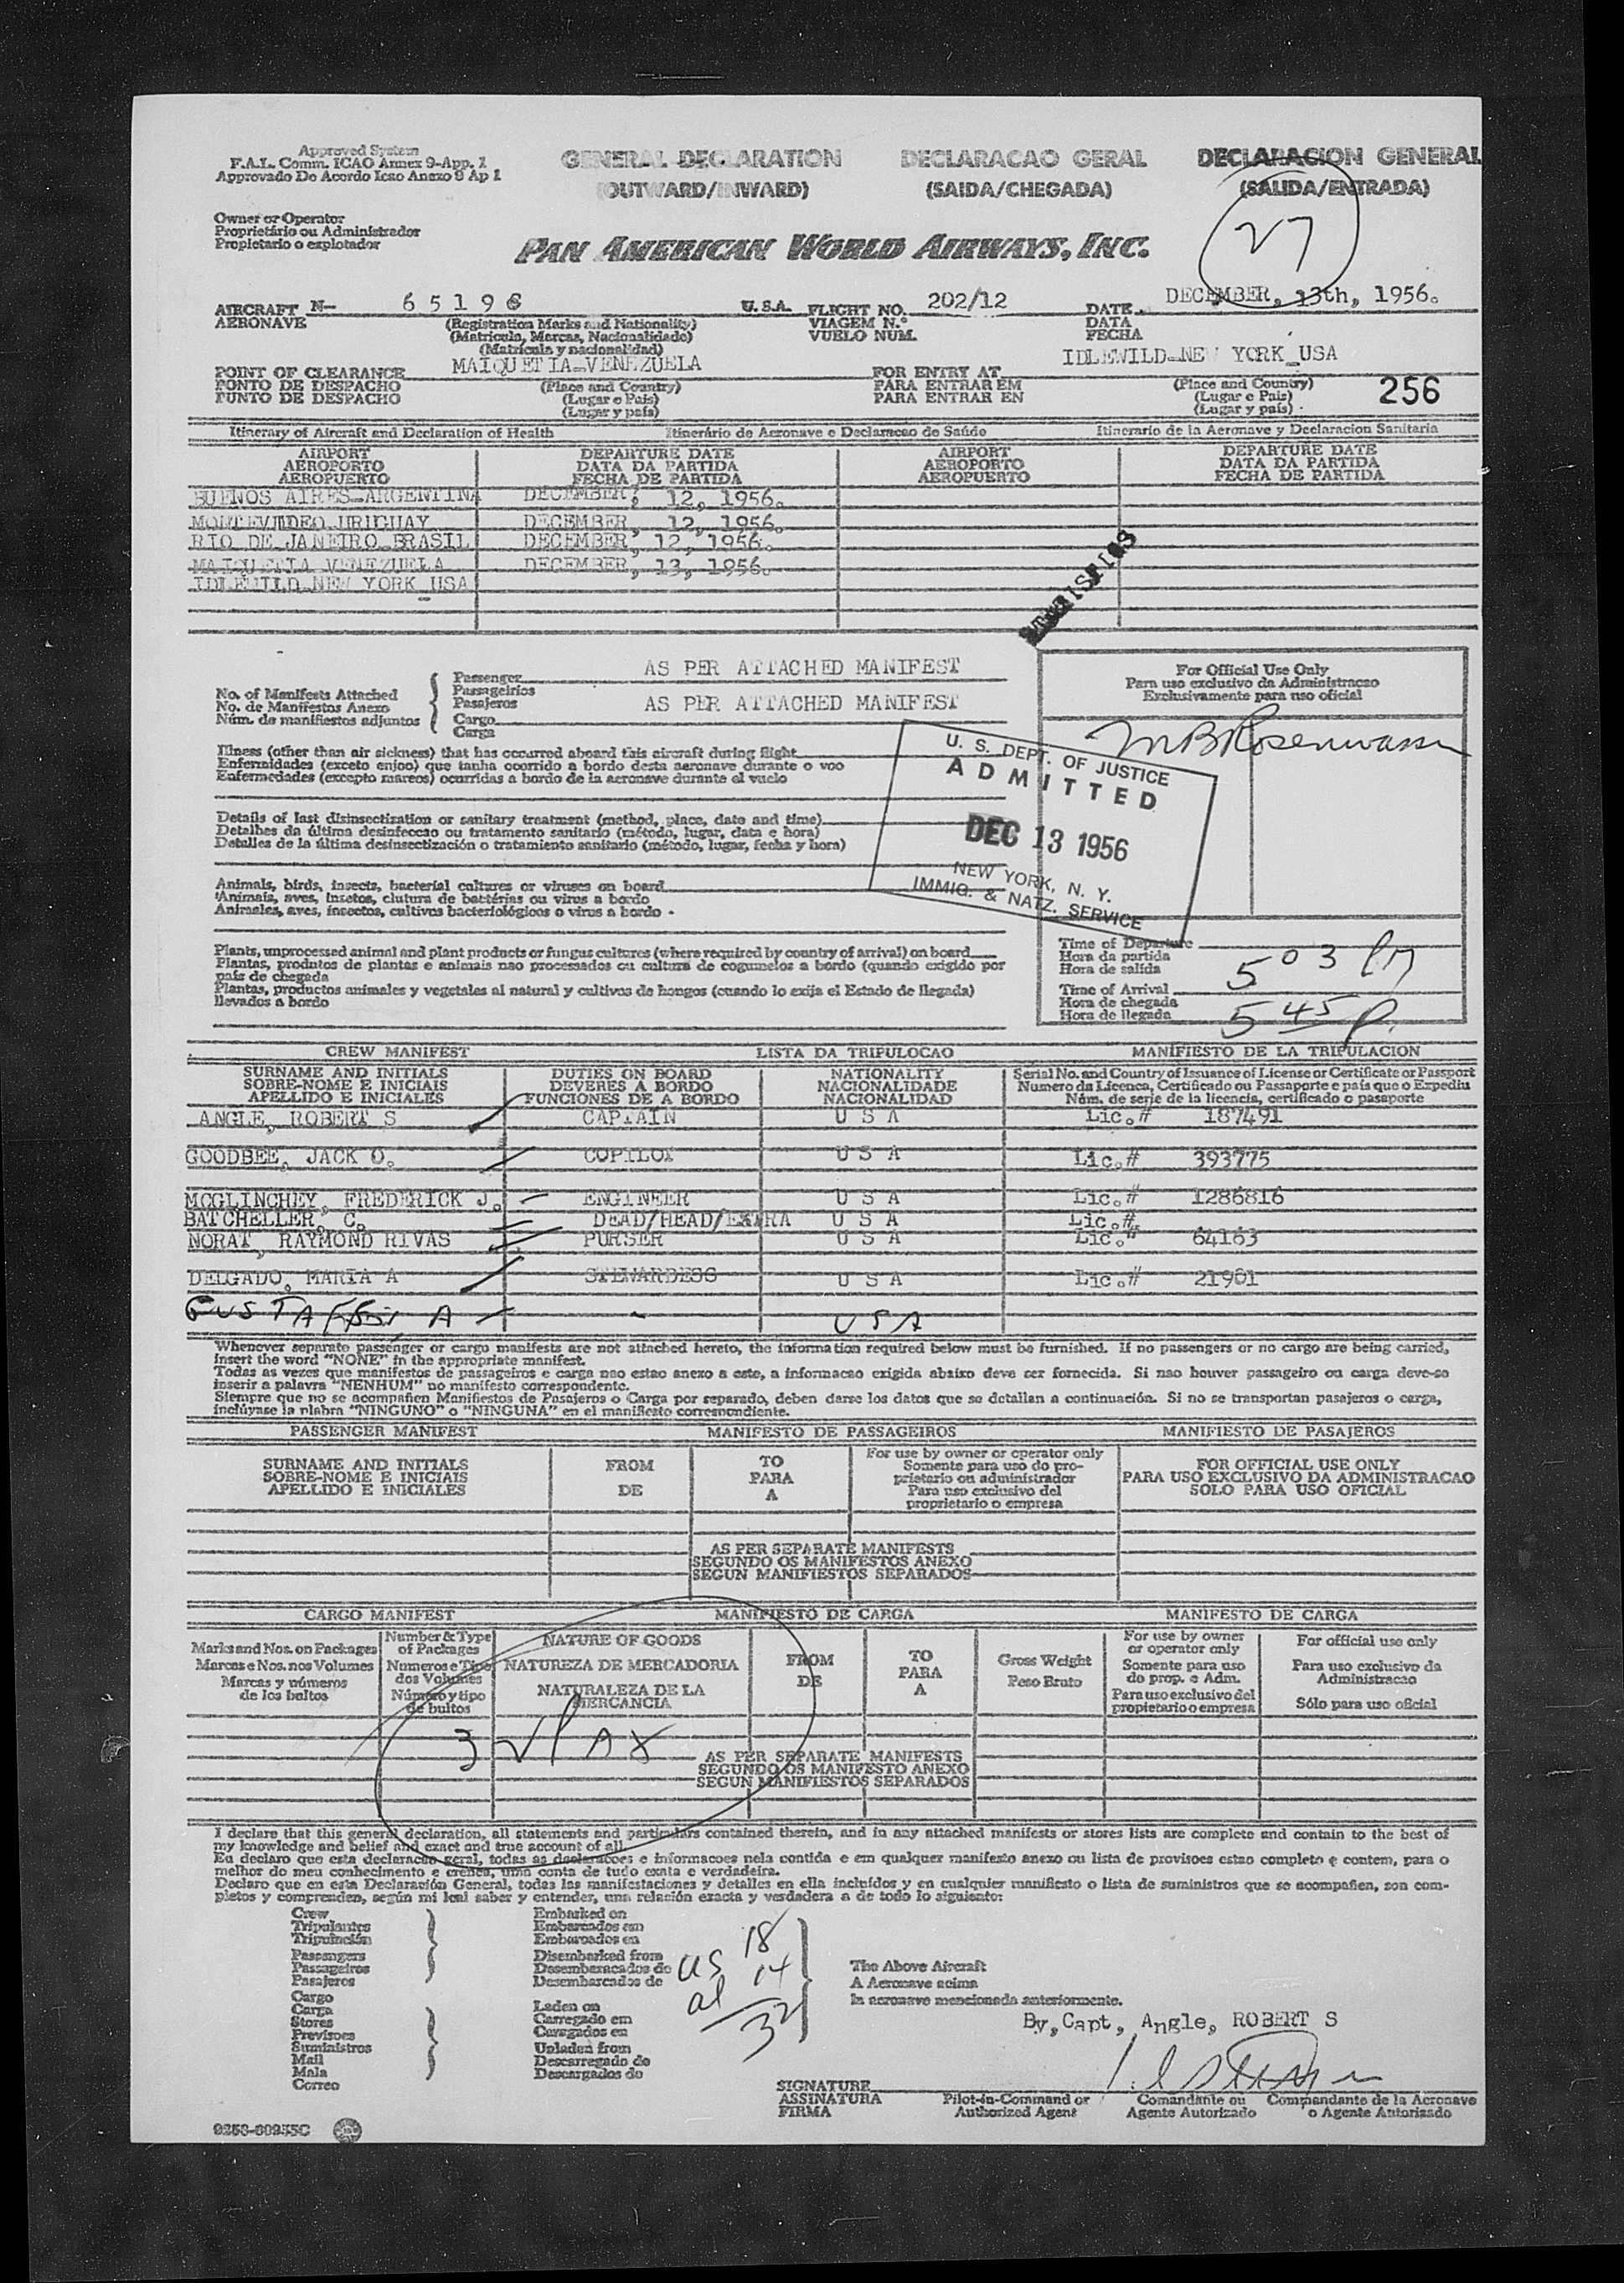 Approved System
F.A.L. Comm. ICAO Annex 9-App. 1
Approvado De Acordo Icao Anexo 9 Ap 1
GENERAL DECLARATION
(OUTWARD/INWARD)
DECLARACAO GERAL
(SAIDA/CHEGADA)
DECLARACION GENERAL
(SALIDA/ENTRADA)
27
Owner or Operator
Proprietário ou Administrador
Propietario o explotador
PAN AMERICAN WORLD AIRWAYS, INC.
AIRCRAFT N- 65196 U.S.A. FLIGHT NO. 202/12 DATE DECEMBER, 13th, 1956.
AERONAVE (Registration Marks and Nationality) VIAGEM N.° DATA
(Matricula, Marcas, Nacionalidade) VUELO NUM. FECHA
(Matricula y nacionalidad)
POINT OF CLEARANCE MAIQUETIA-VENEZUELA FOR ENTRY AT IDLEWILD-NEW YORK USA
PONTO DE DESPACHO (Place and Country) PARA ENTRAR EM (Place and Country)
PUNTO DE DESPACHO (Lugar e Pais) PARA ENTRAR EN (Lugar e Pais)
(Lugar y pais) (Lugar y pais)
256
Itinerary of Aircraft and Declaration of Health Itinerário de Aeronave e Declaracao de Saúde Itinerario de la Aeronave y Declaracion Sanitaria
AIRPORT DEPARTURE DATE AIRPORT DEPARTURE DATE
AEROPORTO DATA DA PARTIDA AEROPORTO DATA DA PARTIDA
AEROPUERTO FECHA DE PARTIDA AEROPUERTO FECHA DE PARTIDA
BUENOS AIRES-ARGENTINA DECEMBER, 12, 1956.
MONTEVIDEO URUGUAY DECEMBER, 12, 1956.
RIO DE JANEIRO BRASIL DECEMBER, 12, 1956.
MAIQUETIA VENEZUELA DECEMBER, 13, 1956.
IDLEWILD-NEW YORK USA
No. of Manifests Attached
No. de Manifestos Anexo
Núm. de manifiestos adjuntos
Passenger AS PER ATTACHED MANIFEST
Passageirios
Pasajeros AS PER ATTACHED MANIFEST
Cargo
Carga
For Official Use Only
Para uso exclusivo da Administracao
Exclusivamente para uso oficial
Illness (other than air sickness) that has occurred aboard this aircraft during flight
Enfermidades (exceto enjoo) que tenha ocorrido a bordo desta aeronave durante o voo
Enfermedades (excepto mareos) ocurridas a bordo de la aeronave durante el vuelo
U. S. DEPT. OF JUSTICE
ADMITTED
DEC 13 1956
NEW YORK, N. Y.
IMMIG. & NATZ. SERVICE
Details of last disinsectization or sanitary treatment (method, place, date and time)
Detalhes da última desinfeccao ou tratamento sanitario (método, lugar, data e hora)
Detalles de la última desinsectización o tratamiento sanitario (método, lugar, fecha y hora)
Animals, birds, insects, bacterial cultures or viruses on board
Animais, aves, insetos, clutura de bactérias ou virus a bordo
Animales, aves, insectos, cultivos bacteriológicos o virus a bordo
Plants, unprocessed animal and plant products or fungus cultures (where required by country of arrival) on board
Plantas, produtos de plantas e animais nao processados ou cultura de cogumelos a bordo (quando exigido por
pais de chegada
Plantas, productos animales y vegetales al natural y cultivos de hongos (cuando lo exija el Estado de llegada)
llevados a bordo
Time of Departure 5 03 PM
Hora da partida
Hora de salida
Time of Arrival 5 45 P.
Hora de chegada
Hora de llegada
CREW MANIFEST LISTA DA TRIPULOCAO MANIFIESTO DE LA TRIPULACION
SURNAME AND INITIALS DUTIES ON BOARD NATIONALITY Serial No. and Country of Issuance of License or Certificate or Passport
SOBRE-NOME E INICIAIS DEVERES A BORDO NACIONALIDADE Numero da Licenca, Certificado ou Passaporte e pais que o Expediu
APELLIDO E INICIALES FUNCIONES DE A BORDO NACIONALIDAD Núm. de serie de la licencia, certificado o pasaporte
ANGLE, ROBERT S CAPTAIN U S A Lic.# 187491
GOODBEE, JACK O. COPILOT U S A Lic.# 393775
MCGLINCHEY, FREDERICK J. ENGINEER U S A Lic.# 1286816
BATCHELLER, C. DEAD/HEAD/EXTRA U S A Lic.#
NORAT, RAYMOND RIVAS PURSER U S A Lic." 64163
DELGADO, MARIA A STEWARDESS U S A Lic.# 21901
USA
Whenever separate passenger or cargo manifests are not attached hereto, the information required below must be furnished. If no passengers or no cargo are being carried,
insert the word "NONE" in the appropriate manifest.
Todas as vezes que manifestos de passageiros e carga nao estao anexo a este, a informacao exigida abaixo deve ser fornecida. Si nao houver passageiro ou carga deve-se
inserir a palavra "NENHUM" no manifesto correspondente.
Siempre que no se acompañen Manifiestos de Pasajeros o Carga por separado, deben darse los datos que se detallan a continuación. Si no se transportan pasajeros o carga,
inclúyase la plabra "NINGUNO" o "NINGUNA" en el manifiesto correspondiente.
PASSENGER MANIFEST MANIFESTO DE PASSAGEIROS MANIFIESTO DE PASAJEROS
SURNAME AND INITIALS
SOBRE-NOME E INICIAIS
APELLIDO E INICIALES
FROM
DE
TO
PARA
A
For use by owner or operator only
Somente para uso do pro-
prietario ou administrador
Para uso exclusivo del
proprietario o empresa
FOR OFFICIAL USE ONLY
PARA USO EXCLUSIVO DA ADMINISTRACAO
SOLO PARA USO OFICIAL
AS PER SEPARATE MANIFESTS
SEGUNDO OS MANIFESTOS ANEXO
SEGUN MANIFIESTOS SEPARADOS
CARGO MANIFEST MANIFIESTO DE CARGA MANIFESTO DE CARGA
Marks and Nos. on Packages
Marcas e Nos. nos Volumes
Marcas y números
de los bultos
Number & Type
of Packages
Numeros e Tipo
dos Volumes
Número y tipo
de bultos
NATURE OF GOODS
NATUREZA DE MERCADORIA
NATURALEZA DE LA
MERCANCIA
FROM
DE
TO
PARA
A
Gross Weight
Peso Bruto
For use by owner
or operator only
Somente para uso
do prop. e Adm.
Para uso exclusivo del
propietario o empresa
For official use only
Para uso exclusivo da
Administracao
Sólo para uso oficial
3
AS PER SEPARATE MANIFESTS
SEGUNDO OS MANIFESTO ANEXO
SEGUN MANIFIESTOS SEPARADOS
I declare that this general declaration, all statements and particulars contained therein, and in any attached manifests or stores lists are complete and contain to the best of
my knowledge and belief and exact and true account of all
Eu declaro que esta declaracao geral, todas as declaracoes e informacoes nela contida e em qualquer manifesto anexo ou lista de provisoes estao completo e contem, para o
melhor do meu conhecimento e crenca, uma conta de tudo exata e verdadeira.
Declaro que en esta Declaración General, todas las manifestaciones y detalles en ella incluídos y en cualquier manifiesto o lista de suministros que se acompañen, son com-
pletos y comprenden, según mi leal saber y entender, una relación exacta y verdadera a de todo lo siguiente:
Crew
Tripulantes
Tripulación
Passengers
Passageiros
Pasajeros
Cargo
Carga
Stores
Provisoes
Suministros
Mail
Mala
Correo
Embarked on
Embarcados em
Embarcados en
Disembarked from
Desembaracados de
Desembarcados de
Laden on
Carregado em
Cargados en
Unladen from
Descarregado de
Descargados de
US 18
al 14
32
The Above Aircraft
A Aeronave acima
la aeronave mencionada anteriormente.
By,Capt, Angle, ROBERT S
SIGNATURE
ASSINATURA
FIRMA
Pilot-in-Command or
Authorized Agent
Comandante ou
Agente Autorizado
Commandante de la Aeronave
o Agente Autorizado